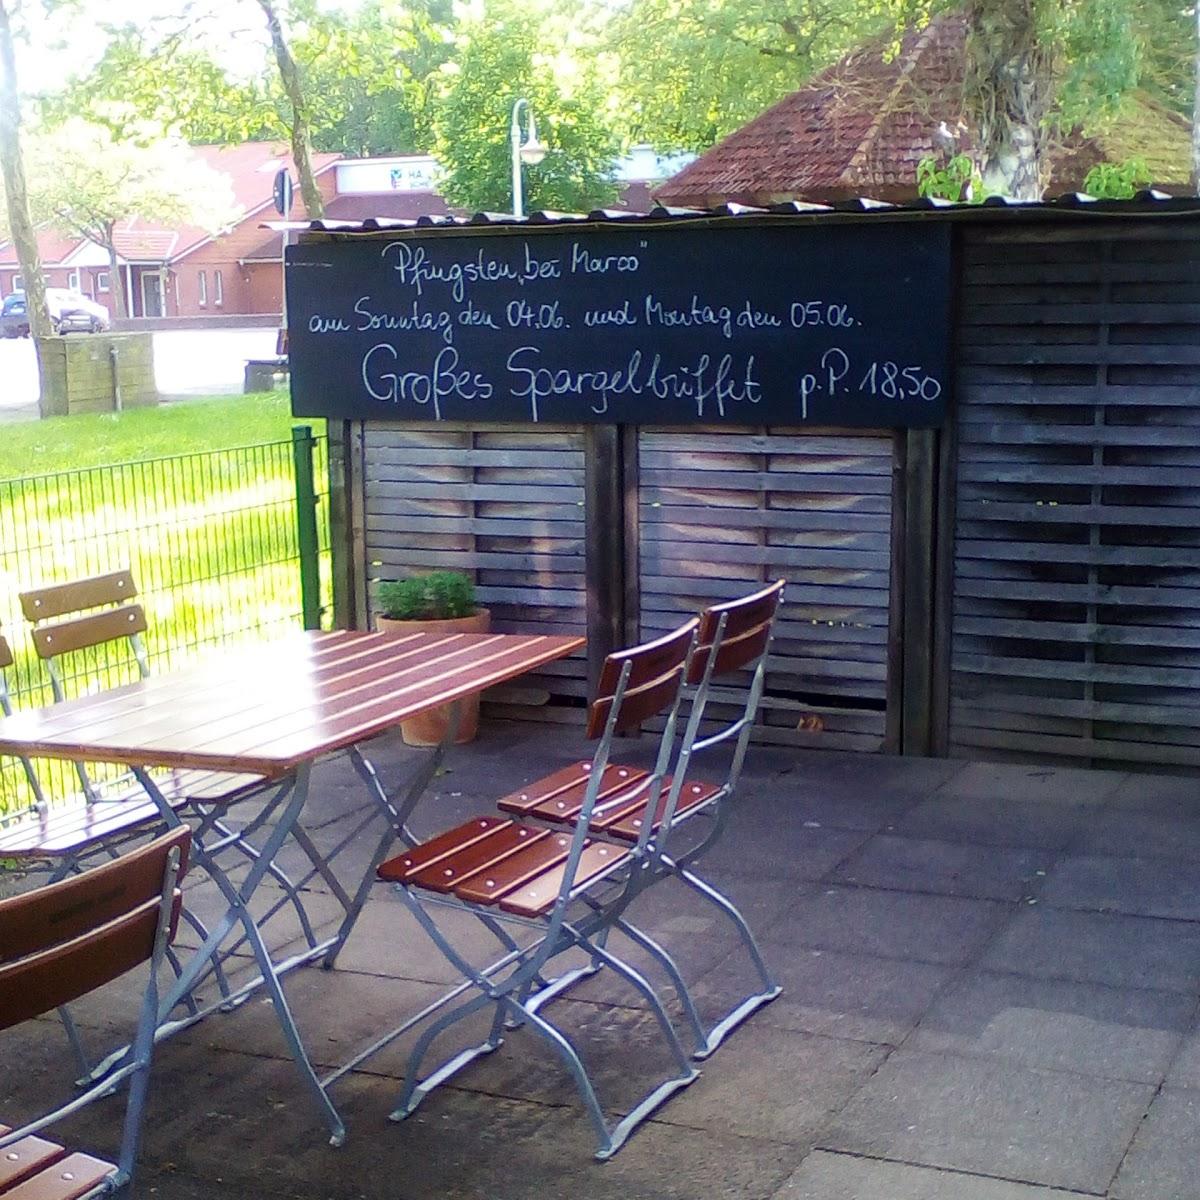 HA
Pfingsten „bei Marco"
am Sonntag den 04.06. und Montag den 05.06.
Großes Spargelbüffet p.P. 18,50